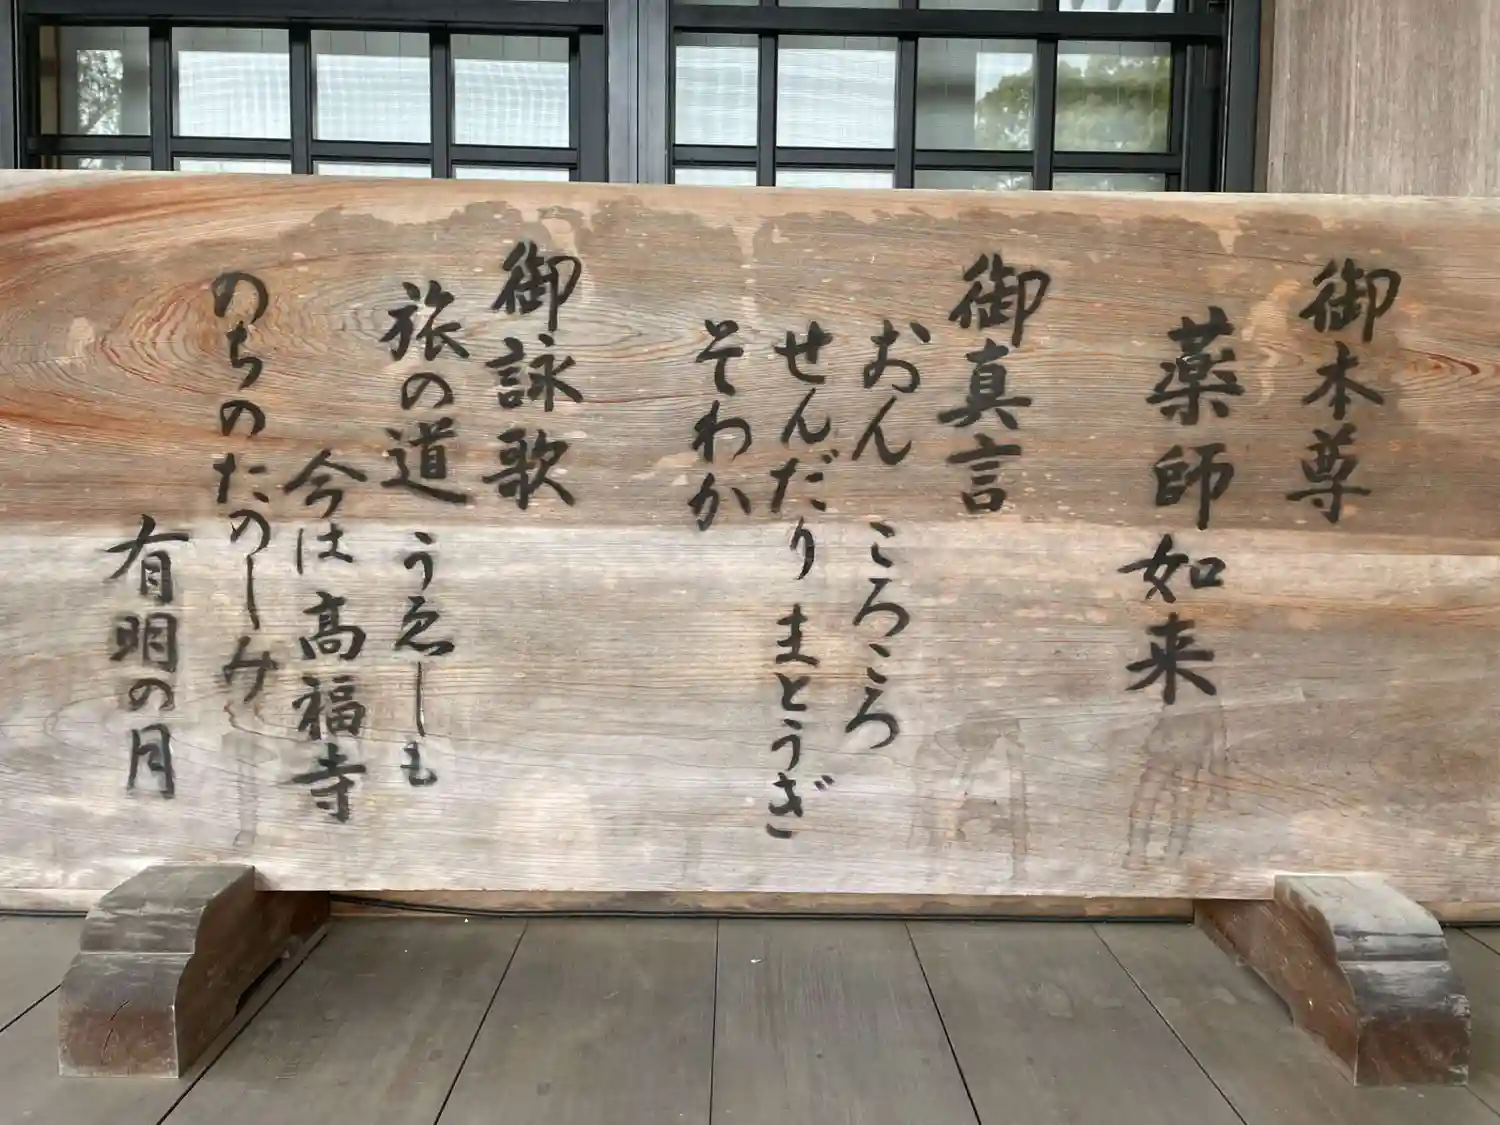 御本尊
薬師如来
御真言
おん ころころ
せんだり まとうぎ
そわか
御詠歌
旅の道 うゑしも
今は高福寺
のちのたのしみ
有明の月